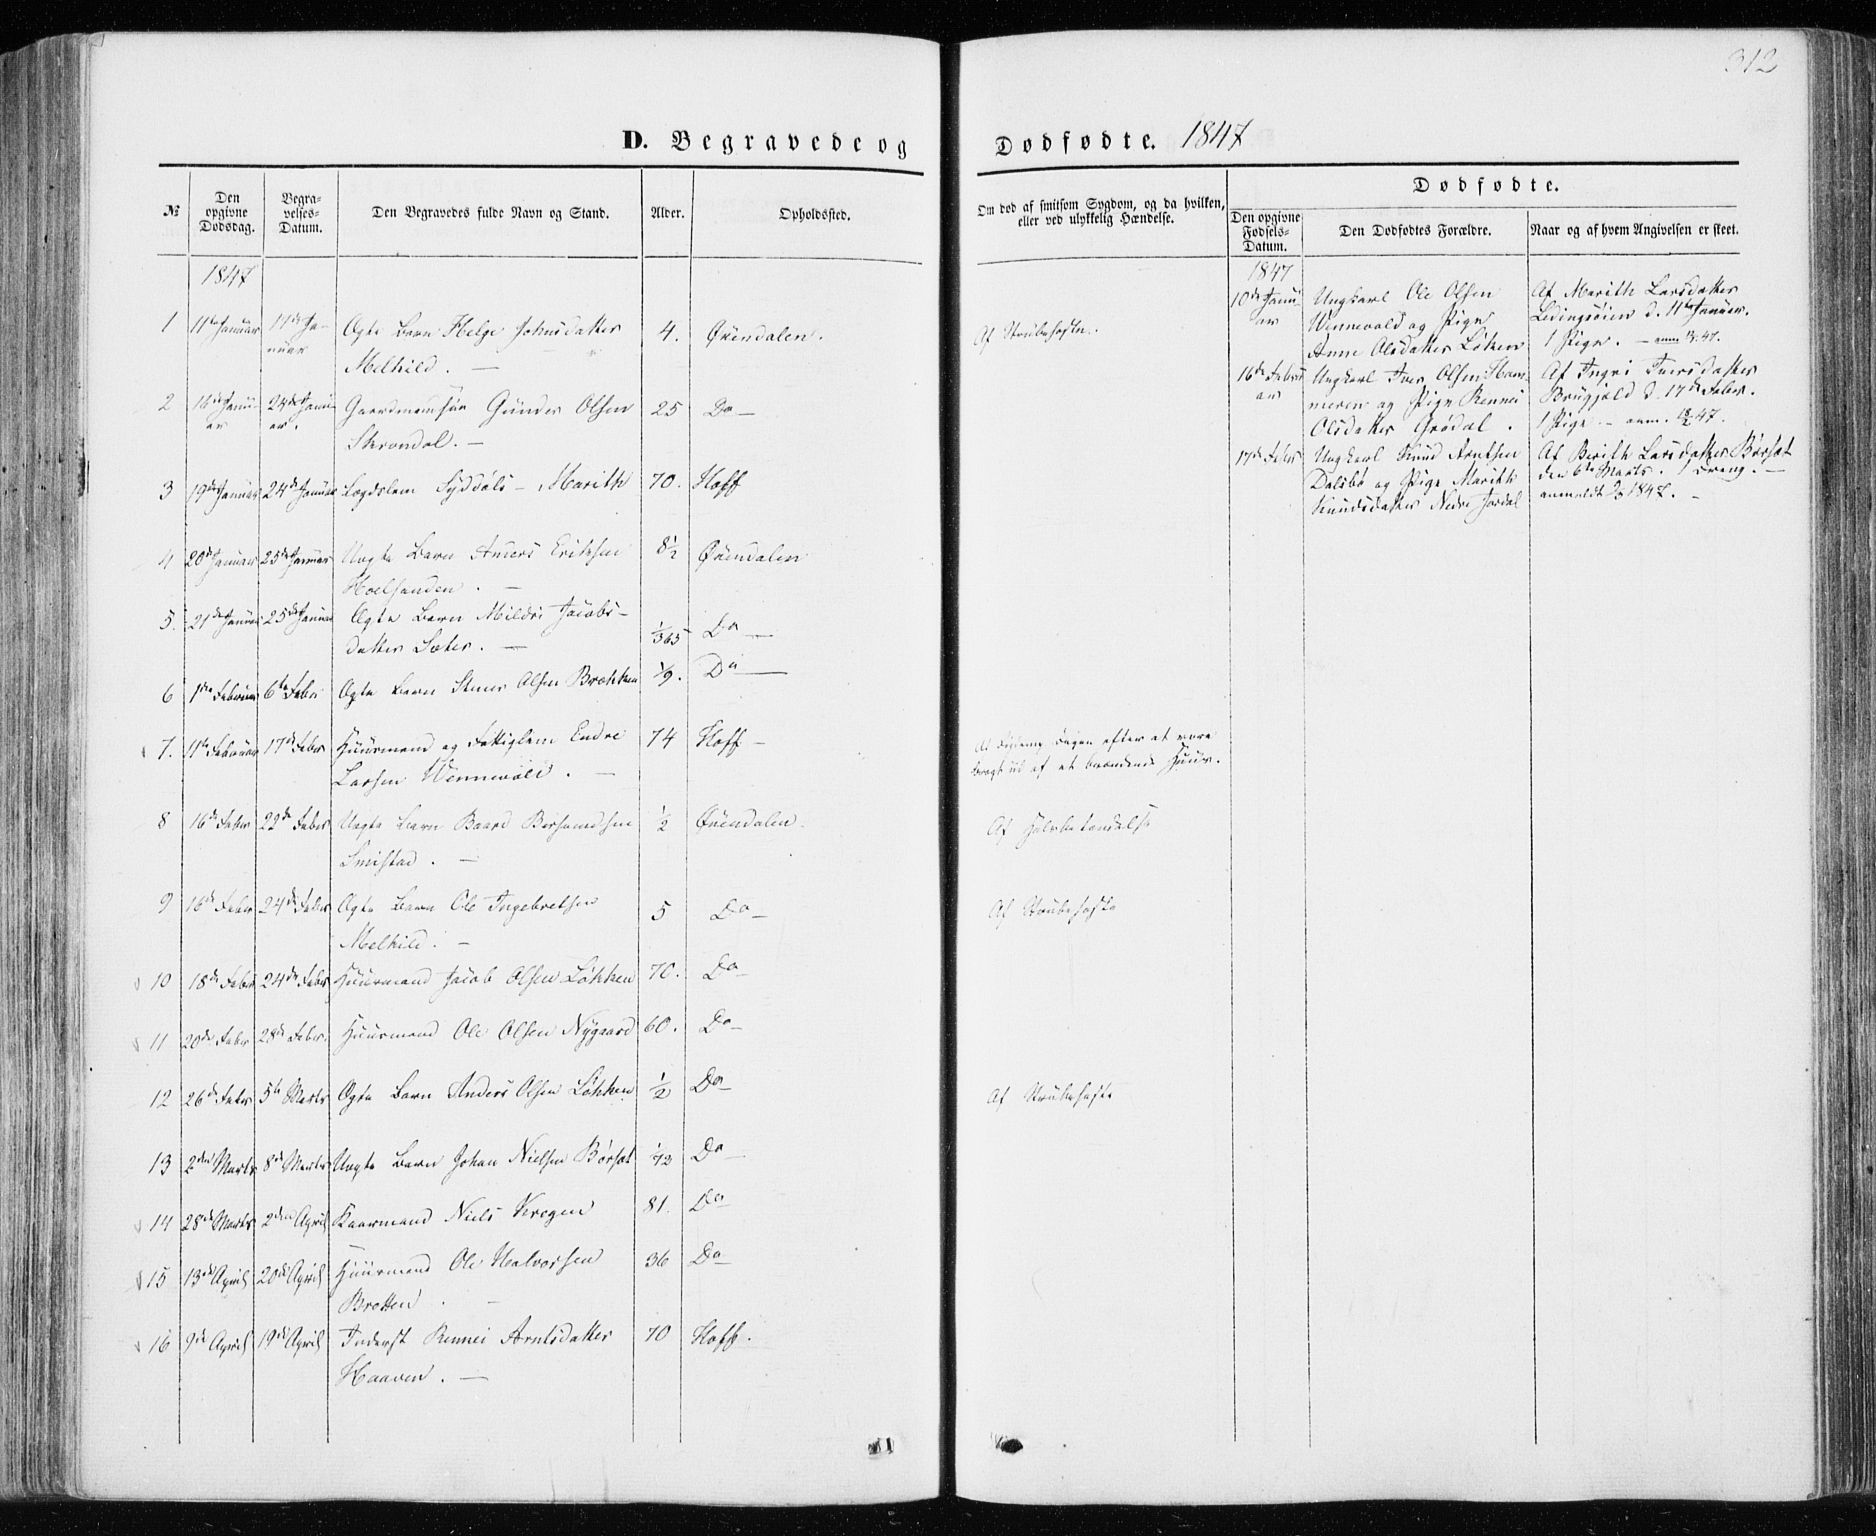 312
D. Begravede og Dødfødte. 1847
№
Den opgivne Dødsdag.
Begravelses-Datum.
Den Begravedes fulde Navn og Stand.
Alder.
Opholdssted.
Om død af smitsom Sygdom, og da hvilken, eller ved ulykkelig Hændelse.
Dødfødte.
Den opgivne Fødsels-Datum.
Den Dødfødtes Forældre.
Naar og af hvem Angivelsen er skeet.
1847
1 11te Januar 17de Januar Ægte Barn Helge Johnsdatter 4. Øxendalen. Af Strubehoste.
Melhild. —
2 16de Januar 24de Januar. Gaardmandssøn Gunder Olsen 25 Do —
Skrondal. —
3 19de Januar 24de Januar Lægdslem Syddøls-Marith 70. Hoff
4 20de Januar 25de Januar Uægte Barn Anders Eriksen 8½ Øxendalen
Hoelsanden. —
5. 21de Januar 25de Januar Ægte Barn Mildri Jacobs- 1/365 Do —
datter Sæter. —
6 1ste Februar 6te Febr Ægte Barn Stener Olsen Brækken 1/9. Do —
7. 11te Februar 17de Febr Huusmand og Fattiglem Endre 74 Hoff —
Larsen Wennevold. — Dagen efter at være
bragt ud af et brændende Huus.
8 16de Febr 22de Febr Uægte Barn Baard Bersvendsen ½ Øxendalen. Af Halsbetændelse
Smistad. —
9 16de Febr 24de Febr Ægte Barn Ole Ingebretsen 5 Do — Af Strubehoste
Melhild. —
10 18de Febr 24de Febr Huusmand Jacob Olsen Løkken 70. Do —
11 20de Febr 28de Febr. Huusmand Ole Olsen Nygaard 60. Do —
12 26de Febr 5te Marts Ægte Barn Anders Olsen Løkken ½ Do — Af Strubehoste
13 2den Marts 8de Marts Uægte Barn Johan Nielsen Børset 1/12 Do —
14 28de Marts 2den April Kaarmand Niels Vregen 81. Do —
15 13de April 20de April Huusmand Ole Halvorsen 36 Do —
Bretten. —
16 9de April 19de April Inderst Rennei Arntsdatter 70 Hoff.
Haaven. —
1847
10de Januar Ungkarl Ole Olsen Af Marith Larsdatter
Wennevold og Pige Ledingsøien d. 11te Januar.
Anne Olsdatter Løken 1 Pige. —
16de Februar Ungkarl Iver Olsen Hammeren Af Ingri Iversdatter
og Pige Rennei Brugjeld d. 17de Febr.
Olsdatter Grødal. 1 Pige — anm. 18/2 47.
17de Febr Ungkarl Knud Arntsen Af Berith Larsdatter Børset
Dalsbø og Pige Marith den 6te Marts. 1 Dreng. —
Knudsdatter Nedre Jordal anmeldt 1847. —